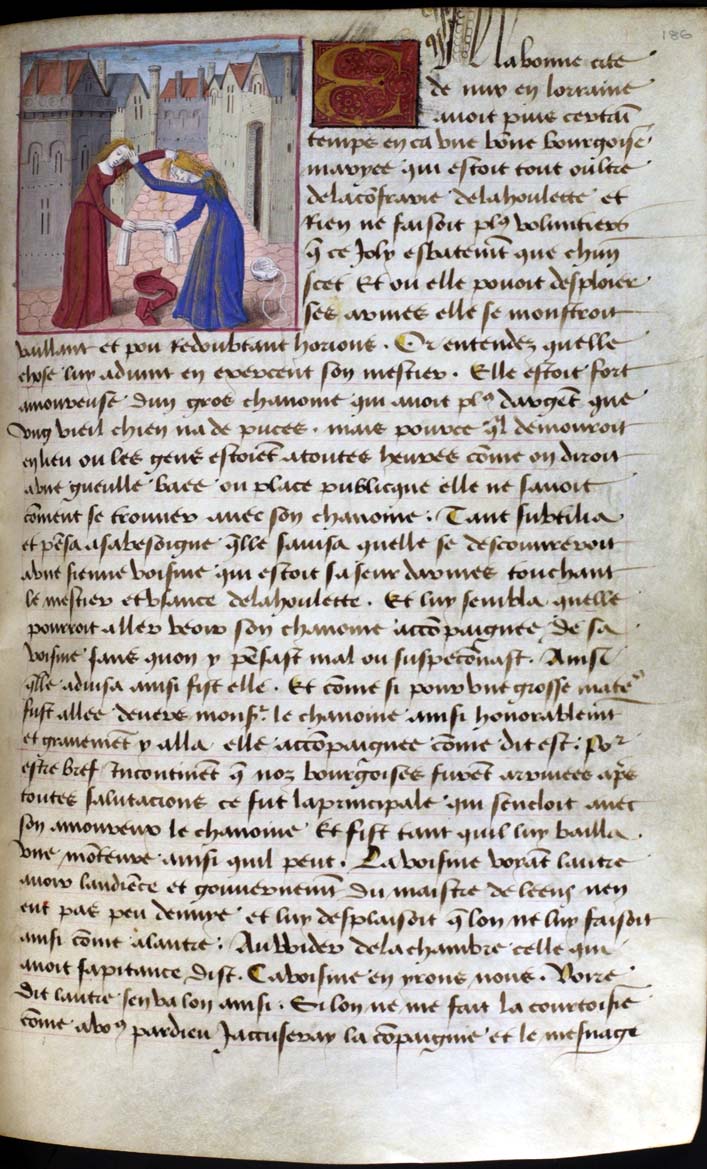 186
En la bonne cite
de mix en lorraine
avoit puis certai
temps en ca vne bone bourgoise
maryee qui estoit tout oultre
de la cofrarie de la houlette et
Rien ne faisoit plꝰ voluntiers
q̄ ce Joly esbatemt que chun
scet Et ou elle pouoit desploier
ses armes elle se monstroit
vaillant et pou Redoubtant horions . Or entendez quelle
chose luy aduint en exercent son mestier . Elle estoit fort
amoureuse dun gros chanoine qui auoit plꝰ dargēt que
vng vieil chien na de puces . mais pource ql demouroit
en lieu ou les gens estoiēt a toutes heures come on diroit
a vne gueulle baee ou place publicque elle ne sauoit
coment se trouuer auec son chanoine . Tant subtilia
et pēsa a sa besoigne qlle sauisa quelle se descouureroit
a vne sienne voisine qui estoit sa seur darmes touchant
le mestier et vsance de la houlette . Et luy sembla quelle
pourroit aller veoir son chanoine accōpaignee de sa
voisine sans quon y pēsast mal ou suspeconast . Ainsi
qlle aduisa ainsi fist elle . Et cōme si pour vne grosse matē
fust allee deuers monsr le chanoine ainsi honorablemt
et grauemēt y alla elle accōpaignee cōme dit est . Por
estre bref Incontinēt q̄ noz bourgoises furēt arriuees aps
toutes salutacions ce fut la principale qui sencloit auec
son amoureux le chanoine Et fist tant quil luy bailla
vne mōteure ainsi quil peut . La voisine voiāt lautre
auoir laudiēce et gouuernemt du maistre de leens nen
eut pas peu denuye et luy desplaisoit q̄ lon ne luy faisoit
ainsi cōme a lautre . Au wider de la chambre celle qui
auoit sa pitance dist . Ca voisine en yrons nous . Voire
dit lautre sen va lon ainsi . Si lon ne me fait la courtoisie
cōme a voꝰ pardieu Jaccuseray la cōpaignie et le mesnage